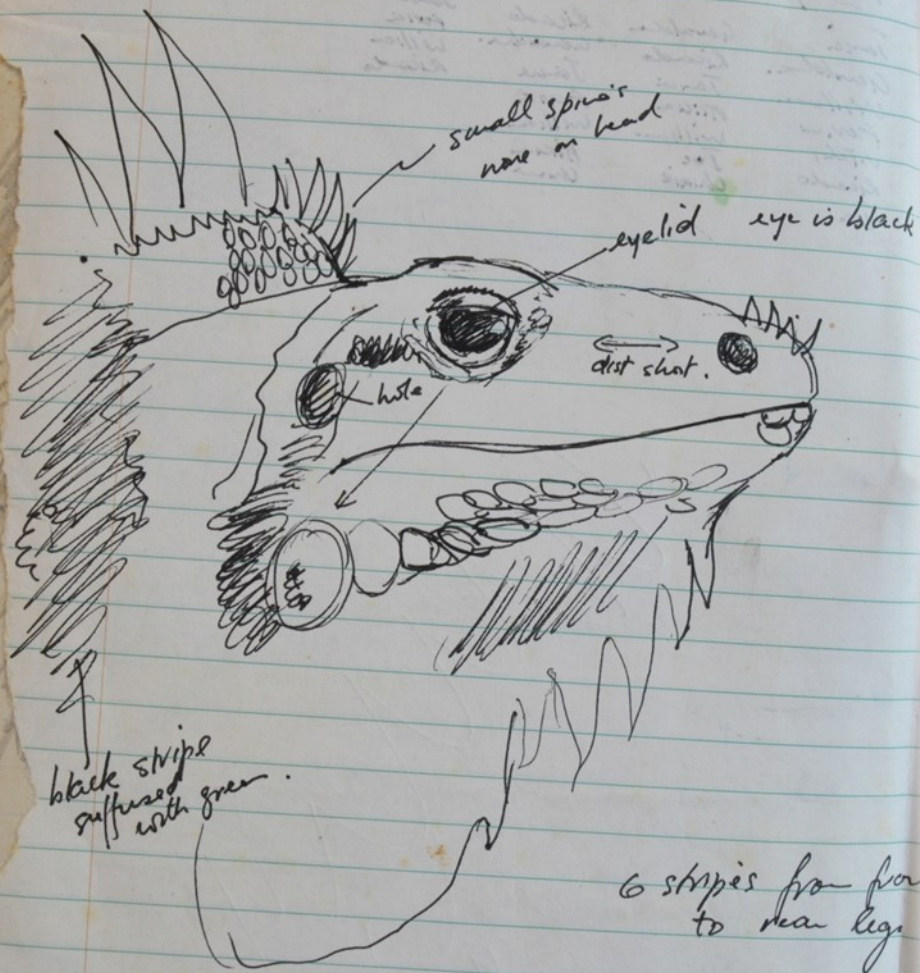 small spines
none on head
eyelid
eye is black
dist short.
hole
black stripe
suffused
with green.
6 stripes from
to rear legs